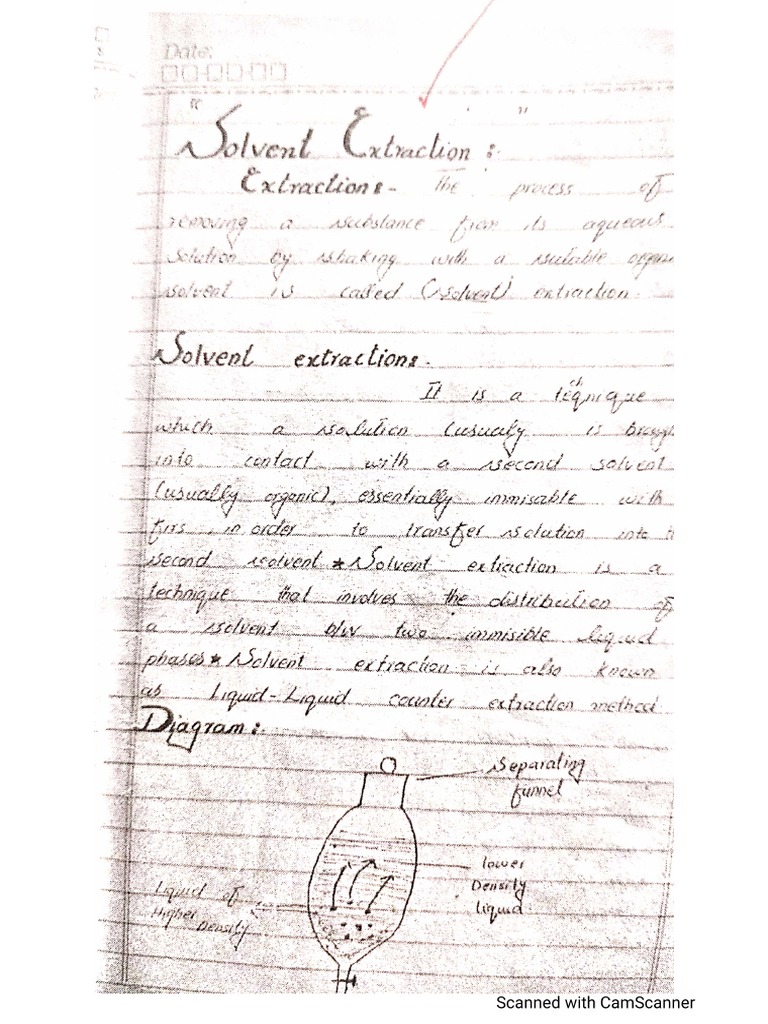 Date:
" "
Solvent Extraction :
Extraction:- The process of
removing a substance from its aqueous
solution by shaking with a suitable organ
solvent is called (solvent) extraction.
Solvent extraction:-
It is a teqnique ch
which a solution (usually is brough
into contact with a second solvent
(usually organic), essentially immisable with
firs in order to transfer solution into th
second solvent * Solvent extraction is a
technique that involves the distribution of
a solvent b/w two immisible liquid
phases * Solvent extraction is also known
as Liquid-Liquid counter extraction method
Diagram:-
Separating
funnel
lower
Density
liquid
Liquid of
Higher Density
Scanned with CamScanner